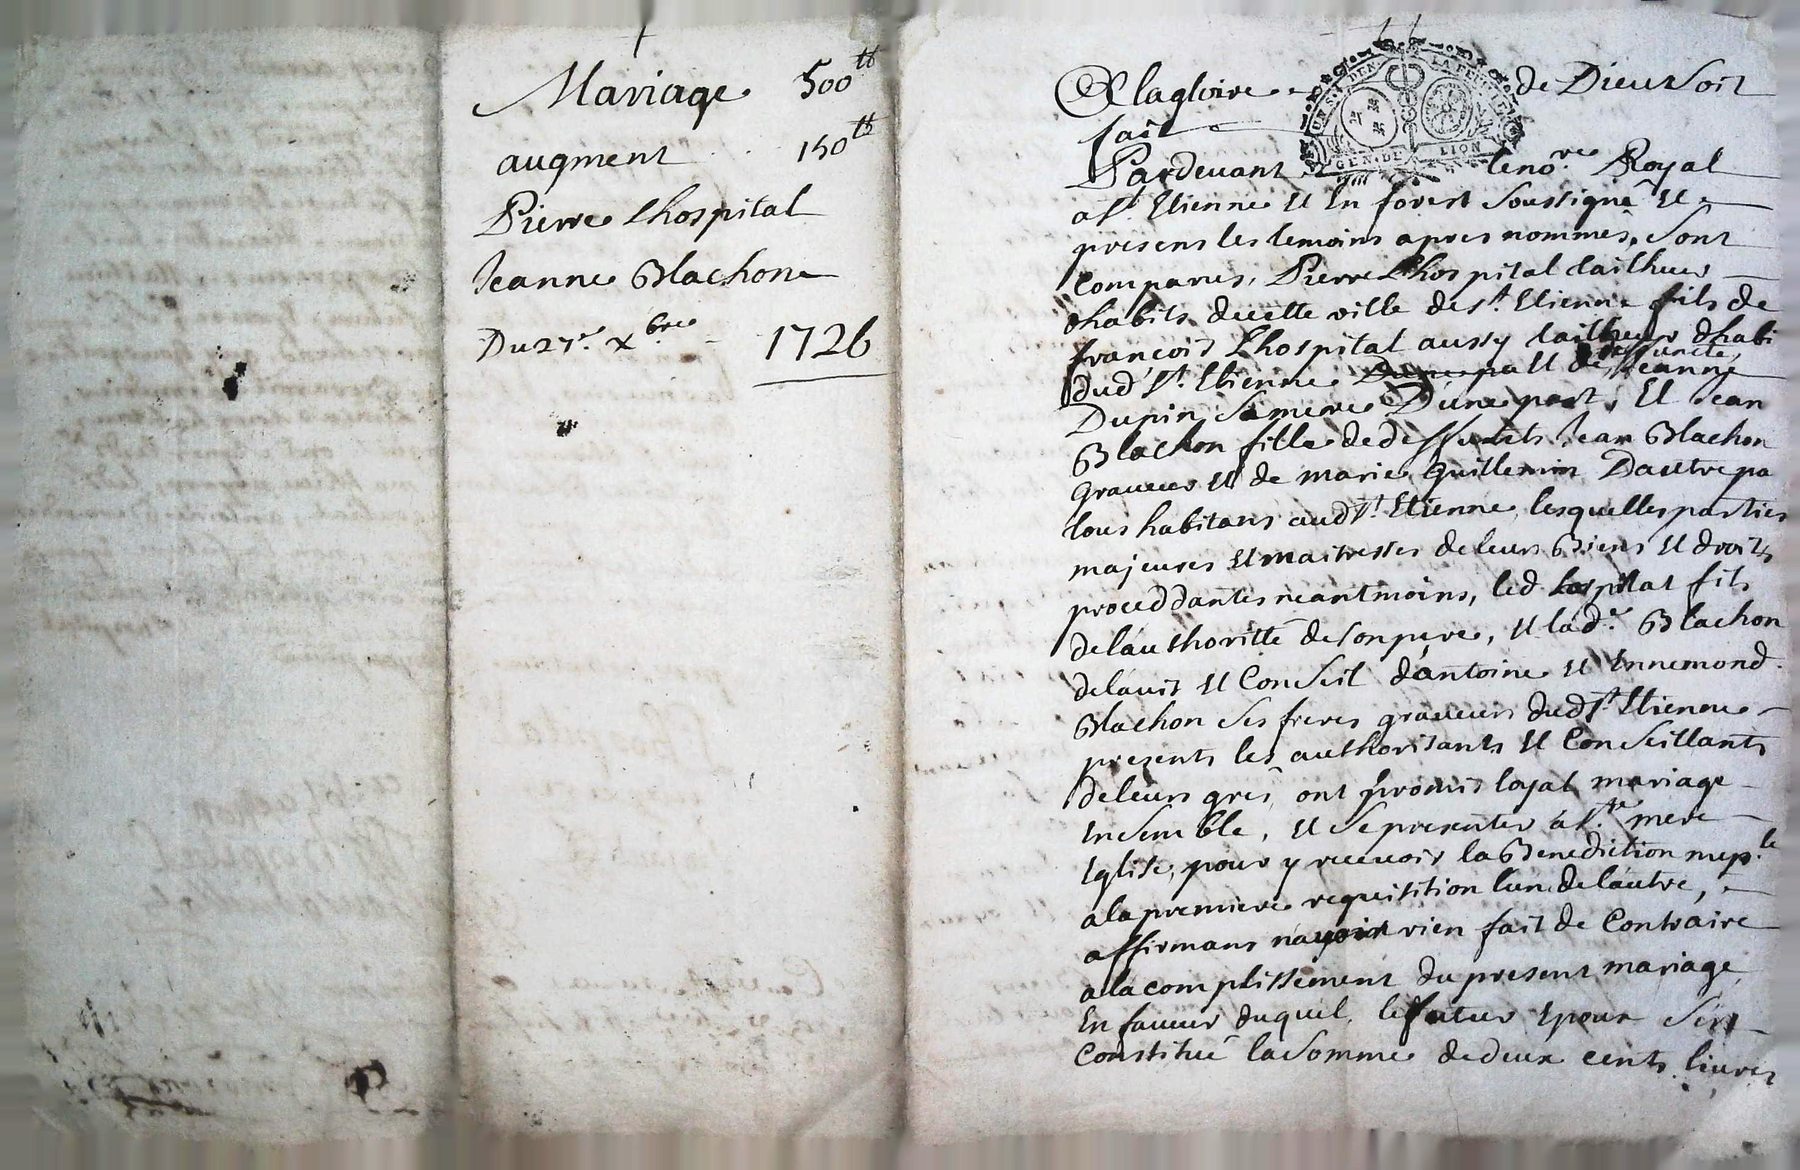 Mariage 500tt
augment 150tt
Pierre Lhospital
Jeanne Blachon
Du 27e xbre 1726
A la gloire de Dieu soit
fait
Pardevant le nore Royal
a St Etienne et en forest soussigné et
presens les temoins apres nommés, sont
comparus, Pierre Lhospital tailheur
dhabits de cette ville de St Etienne fils de
françois Lhospital aussy tailheur dhabi
dud St Etienne et de deffuncte Jeanne
Dupin sa mere Dune part, Et Jean
Blachon fille de deffuncts Jean Blachon
Graveur et de marie Guillemin Dautre pa
tous habitans aud St Etienne, lesquelles parties
majeures et maitresses de leurs Biens et droits
proceddantes neantmoins, led hospital fils
de lauthoritté de son pere, et lade Blachon
de lavis et Conseil dantoine et Ennemond
Blachon ses freres graveurs dud St Etienne
presents les authorisants et Conseillants
de leurs grés, ont promis loyal mariage
Ensemble, et se presenter a Ste mere
Eglise, pour y recevoir la Benediction nuple
a la premiere requisition lun de lautre,
affirmans navoir rien fait de Contraire
a lacomplissement du present mariage
En faveur duquel, le futur Epoux sest
Constitué la somme de deux cents livres
GEN. DE LION